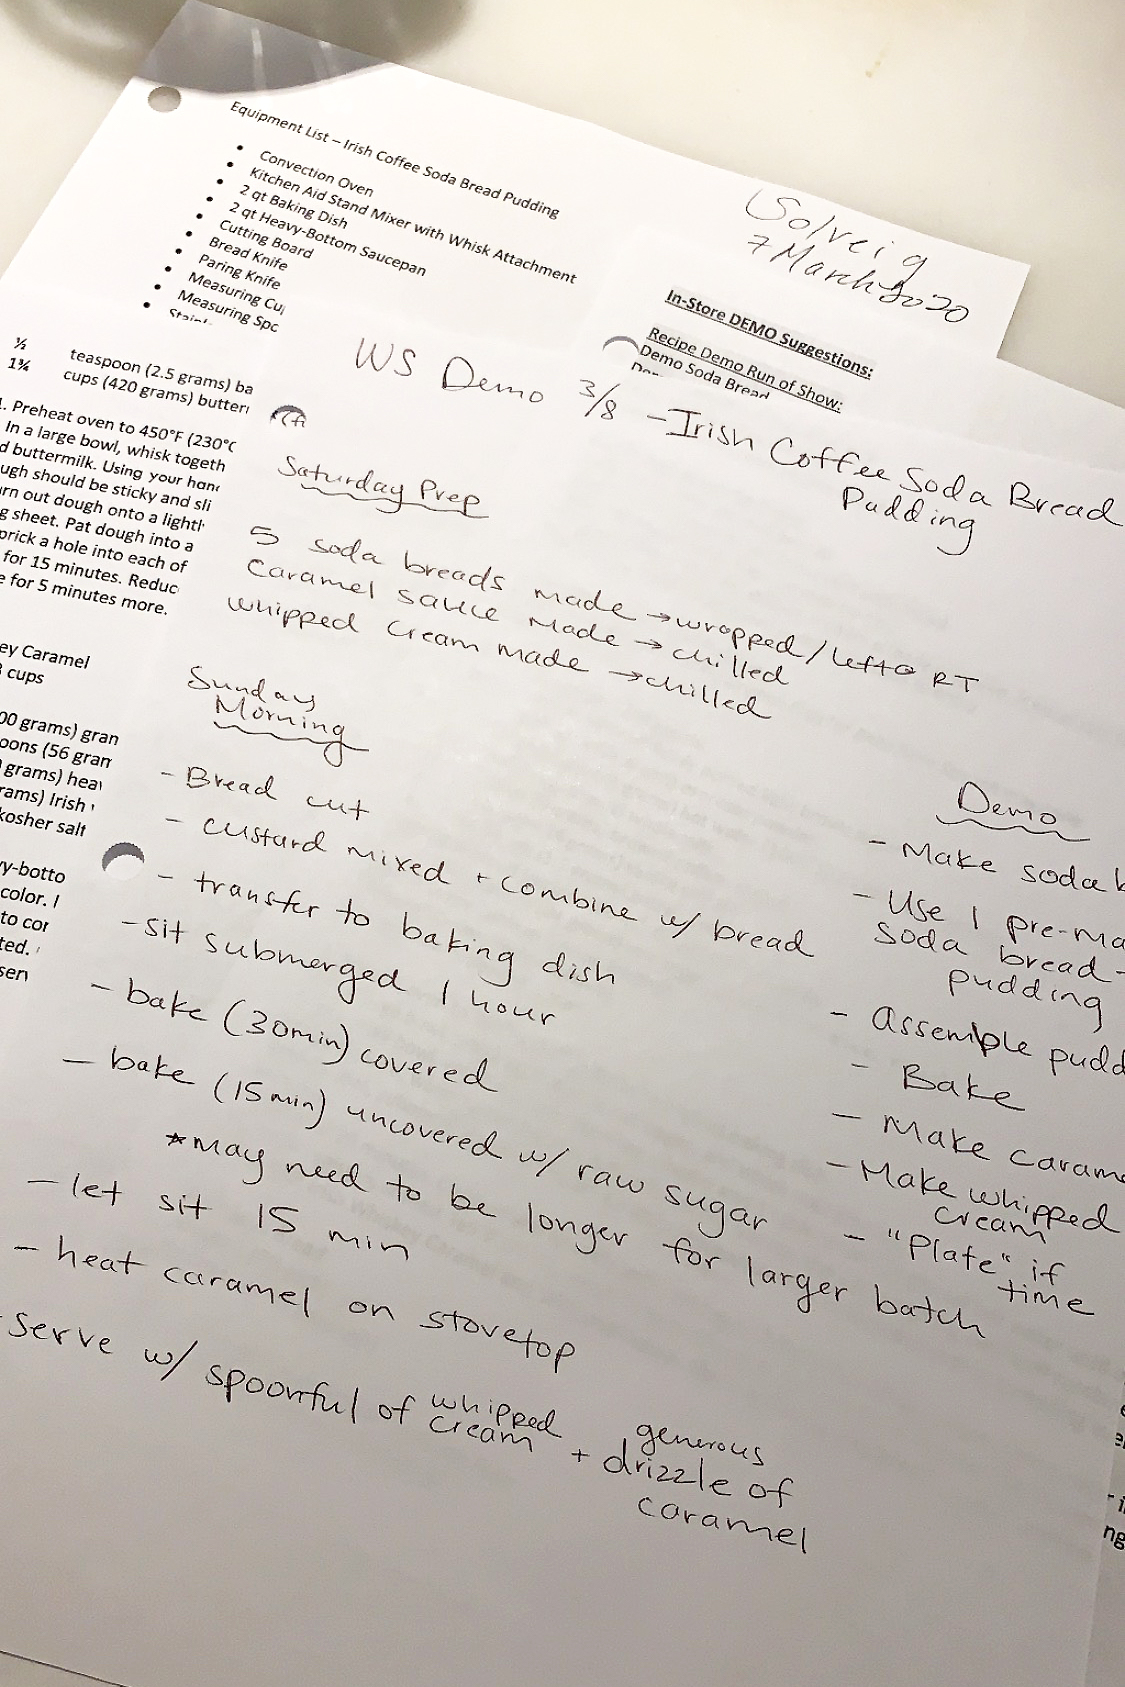 Equipment List – Irish Coffee Soda Bread Pudding
• Convection Oven
• Kitchen Aid Stand Mixer with Whisk Attachment
• 2 qt Baking Dish
• 2 qt Heavy-Bottom Saucepan
• Cutting Board
• Bread Knife
• Paring Knife
• Measuring Cu
• Measuring Spo
•
Solveig
7 March 2020
In-Store DEMO Suggestions:
Recipe Demo Run of Show:
Demo Soda Bread
½ teaspoon (2.5 grams) ba
1¾ cups (420 grams) butter
. Preheat oven to 450°F (230°C
In a large bowl, whisk togeth
d buttermilk. Using your han
ugh should be sticky and sli
rn out dough onto a lightl
g sheet. Pat dough into a
prick a hole into each of
for 15 minutes. Reduc
e for 5 minutes more.
ey Caramel
cups
00 grams) gran
oons (56 gram
grams) hea
rams) Irish
kosher salt
vy-botto
color. I
to cor
ted.
sen
WS Demo 3/8 - Irish Coffee Soda Bread
Pudding
Saturday Prep
5 soda breads made → wrapped/left @ RT
Caramel sauce made → chilled
whipped cream made → chilled
Sunday
Morning
- Bread cut
- custard mixed + combine w/ bread
- transfer to baking dish
- sit submerged 1 hour
- bake (30min) covered
- bake (15min) uncovered w/ raw sugar
*may need to be longer for larger batch
- let sit 15 min
- heat caramel on stovetop
- Serve w/ spoonful of whipped cream + generous drizzle of caramel
Demo
- Make soda b
- Use 1 pre-ma
soda bread -
pudding
- Assemble pudd
- Bake
- Make carame
- Make whipped
cream
- "Plate" if
time